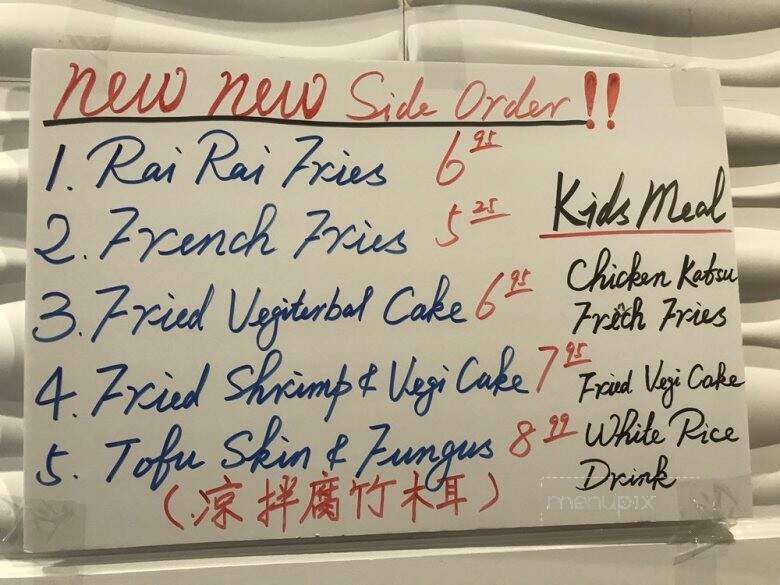 new new Side Order!!
1. Rai Rai Fries 6.95
2. French Fries 5.25
3. Fried Vegiterbal Cake 6.95
4. Fried Shrimp & Vegi Cake 7.95
5. Tofu Skin & Fungus 8.99
(凉拌腐竹木耳)
Kids Meal
Chicken Katsu
Frech Fries
Fried Vegi Cake
White Rice
Drink
menupix